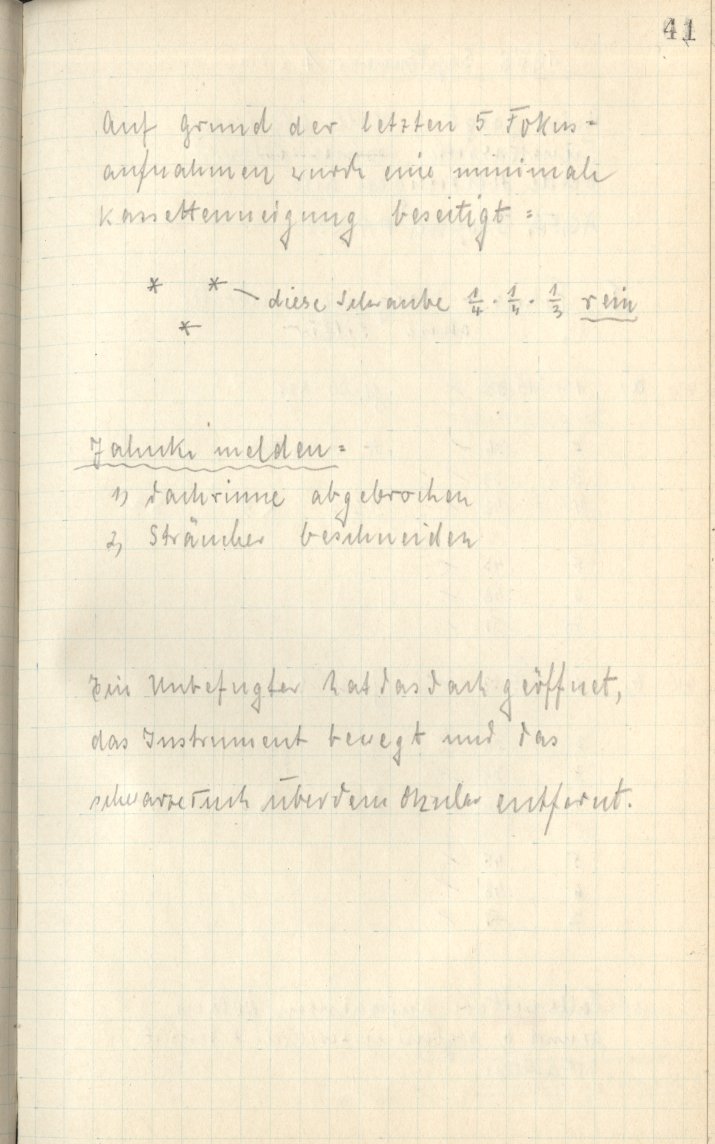 41
Auf Grund der letzten 5 Fokus=
aufnahmen wurde eine minimale
Kassettenneigung beseitigt:
* * diese Schraube 1/4 · 1/4 · 1/3 rein
*
Jahnke melden:
1) Dachrinne abgebrochen
2) Sträucher beschneiden
Ein Unbefugter hat das Dach geöffnet,
das Instrument bewegt und das
schwarze Tuch über dem Okular entfernt.